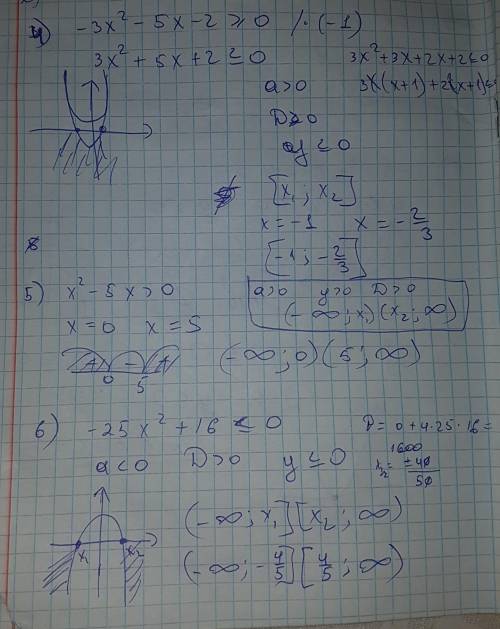 4) -3x² - 5x - 2 ≥ 0 /·(-1)
3x² + 5x + 2 ≤ 0
3x² + 3x + 2x + 2 ≤ 0
3x(x+1) + 2(x+1) ≤
a > 0
D > 0
y ≤ 0
[x₁ ; x₂]
x = -1 x = -2/3
[-1 ; -2/3]
5) x² - 5x > 0
x = 0 x = 5
a>0 y>0 D>0
(-∞; x₁) (x₂; ∞)
+ - +
0 5
(-∞; 0) (5; ∞)
6) -25x² + 16 ≤ 0
D = 0 + 4·25·16 =
1600
a < 0 D > 0 y ≤ 0
= ±40/50
x₁ x₂
(-∞; x₁] [x₂; ∞)
(-∞; -4/5] [4/5; ∞)